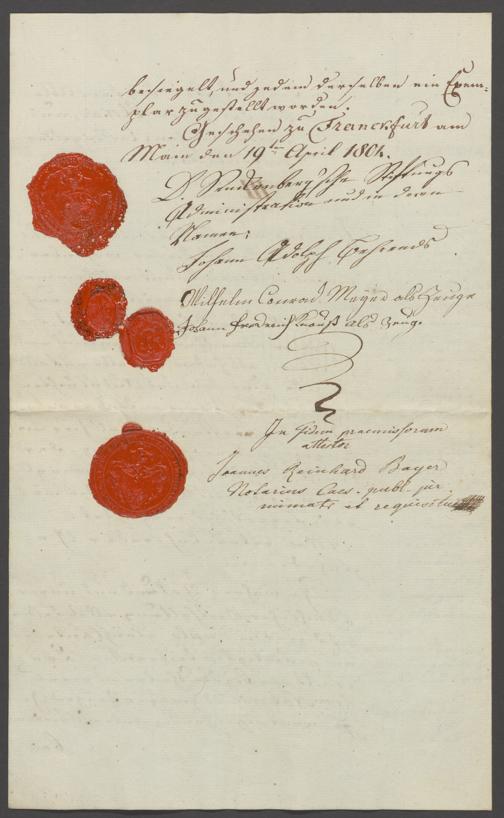 besiegelt, und jedem derselben ein Exem-
plar zugestellt worden.
Geschehen zu Franckfurt am
Main den 19ten April 1804.
Dr. Senckenberg'sche Stiftungs
Administration und in deren
Namen;
Johann Adolph Behrends
Wilhelm Conrad Meyer als Zeuge
Johann Friedrich Knauß als Zeuge
In fidem praemissorum
attestor
Joannes Reinhard Bayer
Notarius Caes. publ. jur.
immatr. et requisitus